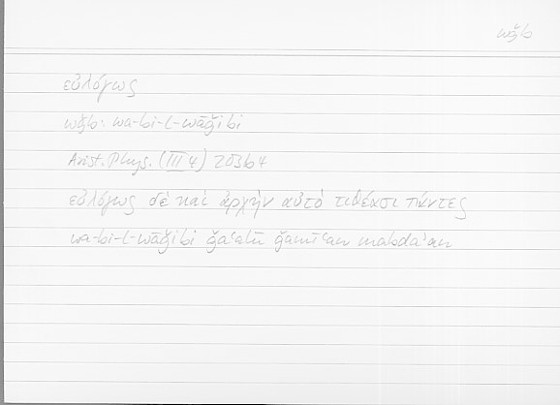 wǧb
εὐλόγως
wǧb: wa-bi-l-wāǧibi
Arist. Phys. (III 4) 203b4
εὐλόγως δὲ καὶ ἀρχὴν αὐτὸ τιθέασι πάντες
wa-bi-l-wāǧibi ǧaʿalū ǧamīʿan mabdaʾan